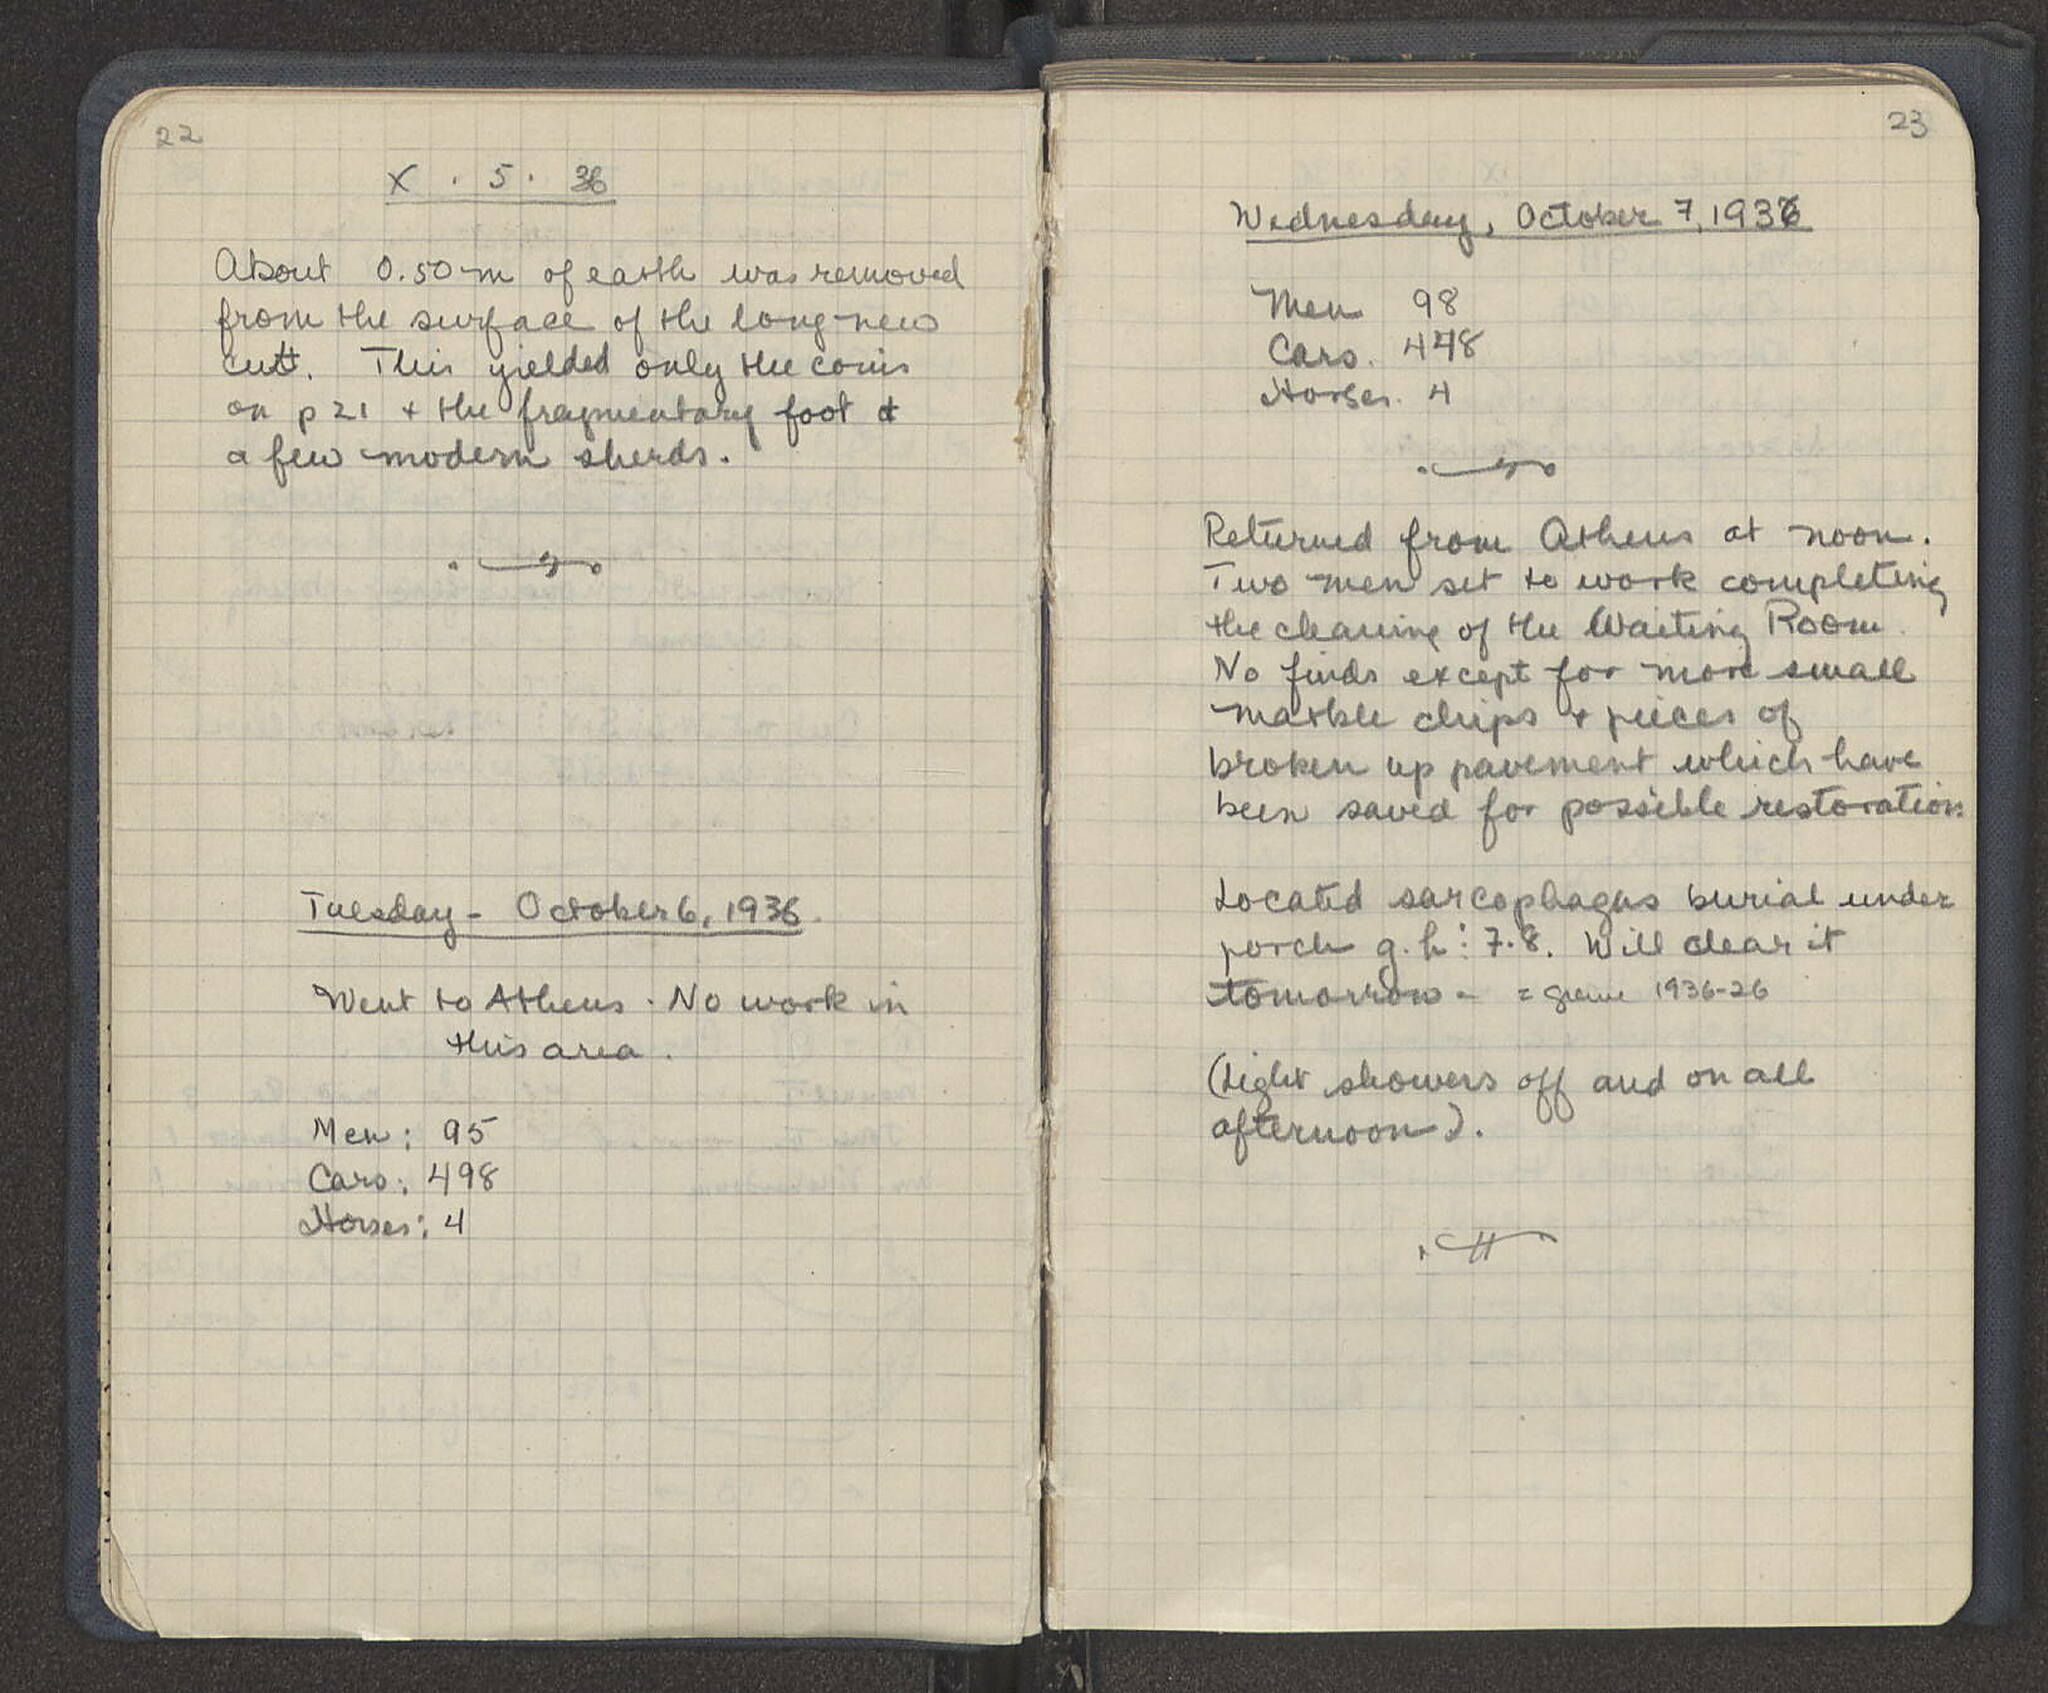 22
X . 5 . 36
About 0.50 m of earth was removed
from the surface of the long new
cut. This yielded only the coins
on p 21 + the fragmentary foot &
a few modern sherds.
Tuesday - October 6, 1936.
Went to Athens. No work in
this area.
Men: 95
Cars: 498
Horses: 4
23
Wednesday, October 7, 1936
Men 98
Cars. 448
Horses. 4
Returned from Athens at noon.
Two men set to work completing
the clearing of the Waiting Room.
No finds except for more small
marble chips + pieces of
broken up pavement which have
been saved for possible restoration.
Located sarcophagus burial under
porch g.h : 7.8. Will clear it
tomorrow - = grave 1936-26
(Light showers off and on all
afternoon).